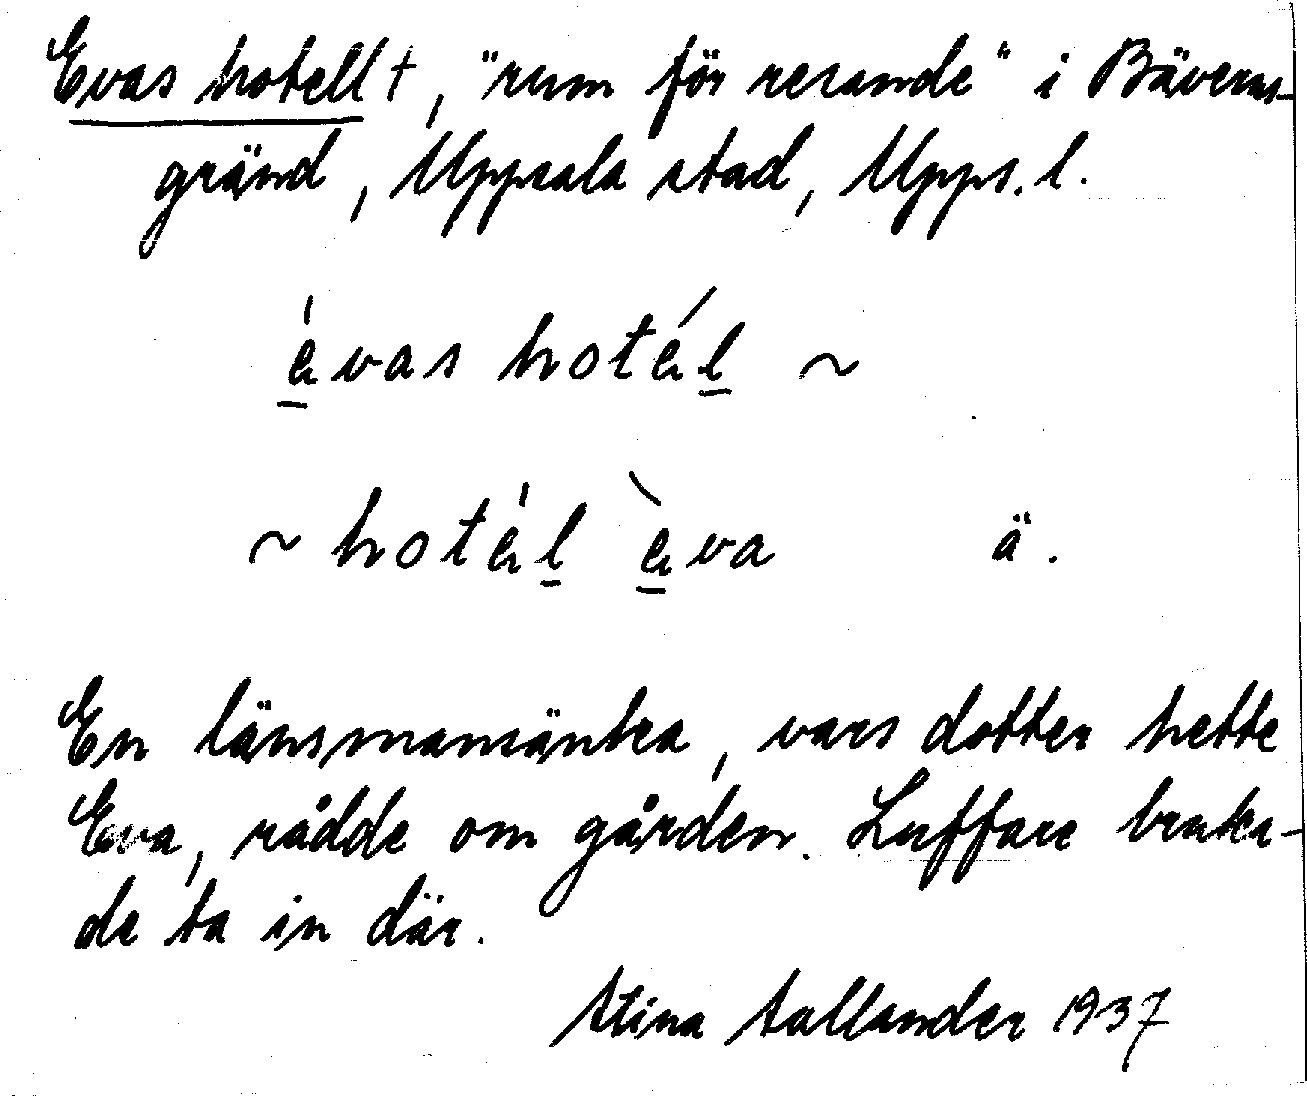 Evas hotell†, "rum för resande" i Bäverns-
gränd, Uppsala stad, Upps. l.
é̱vas hotél̲ ~
~ hotél̲ è̱va ä.
En länsmansänka, vars dotter hette
Eva, rådde om gården. Luffare bruka-
de ta in där.
Stina Sallander 1937